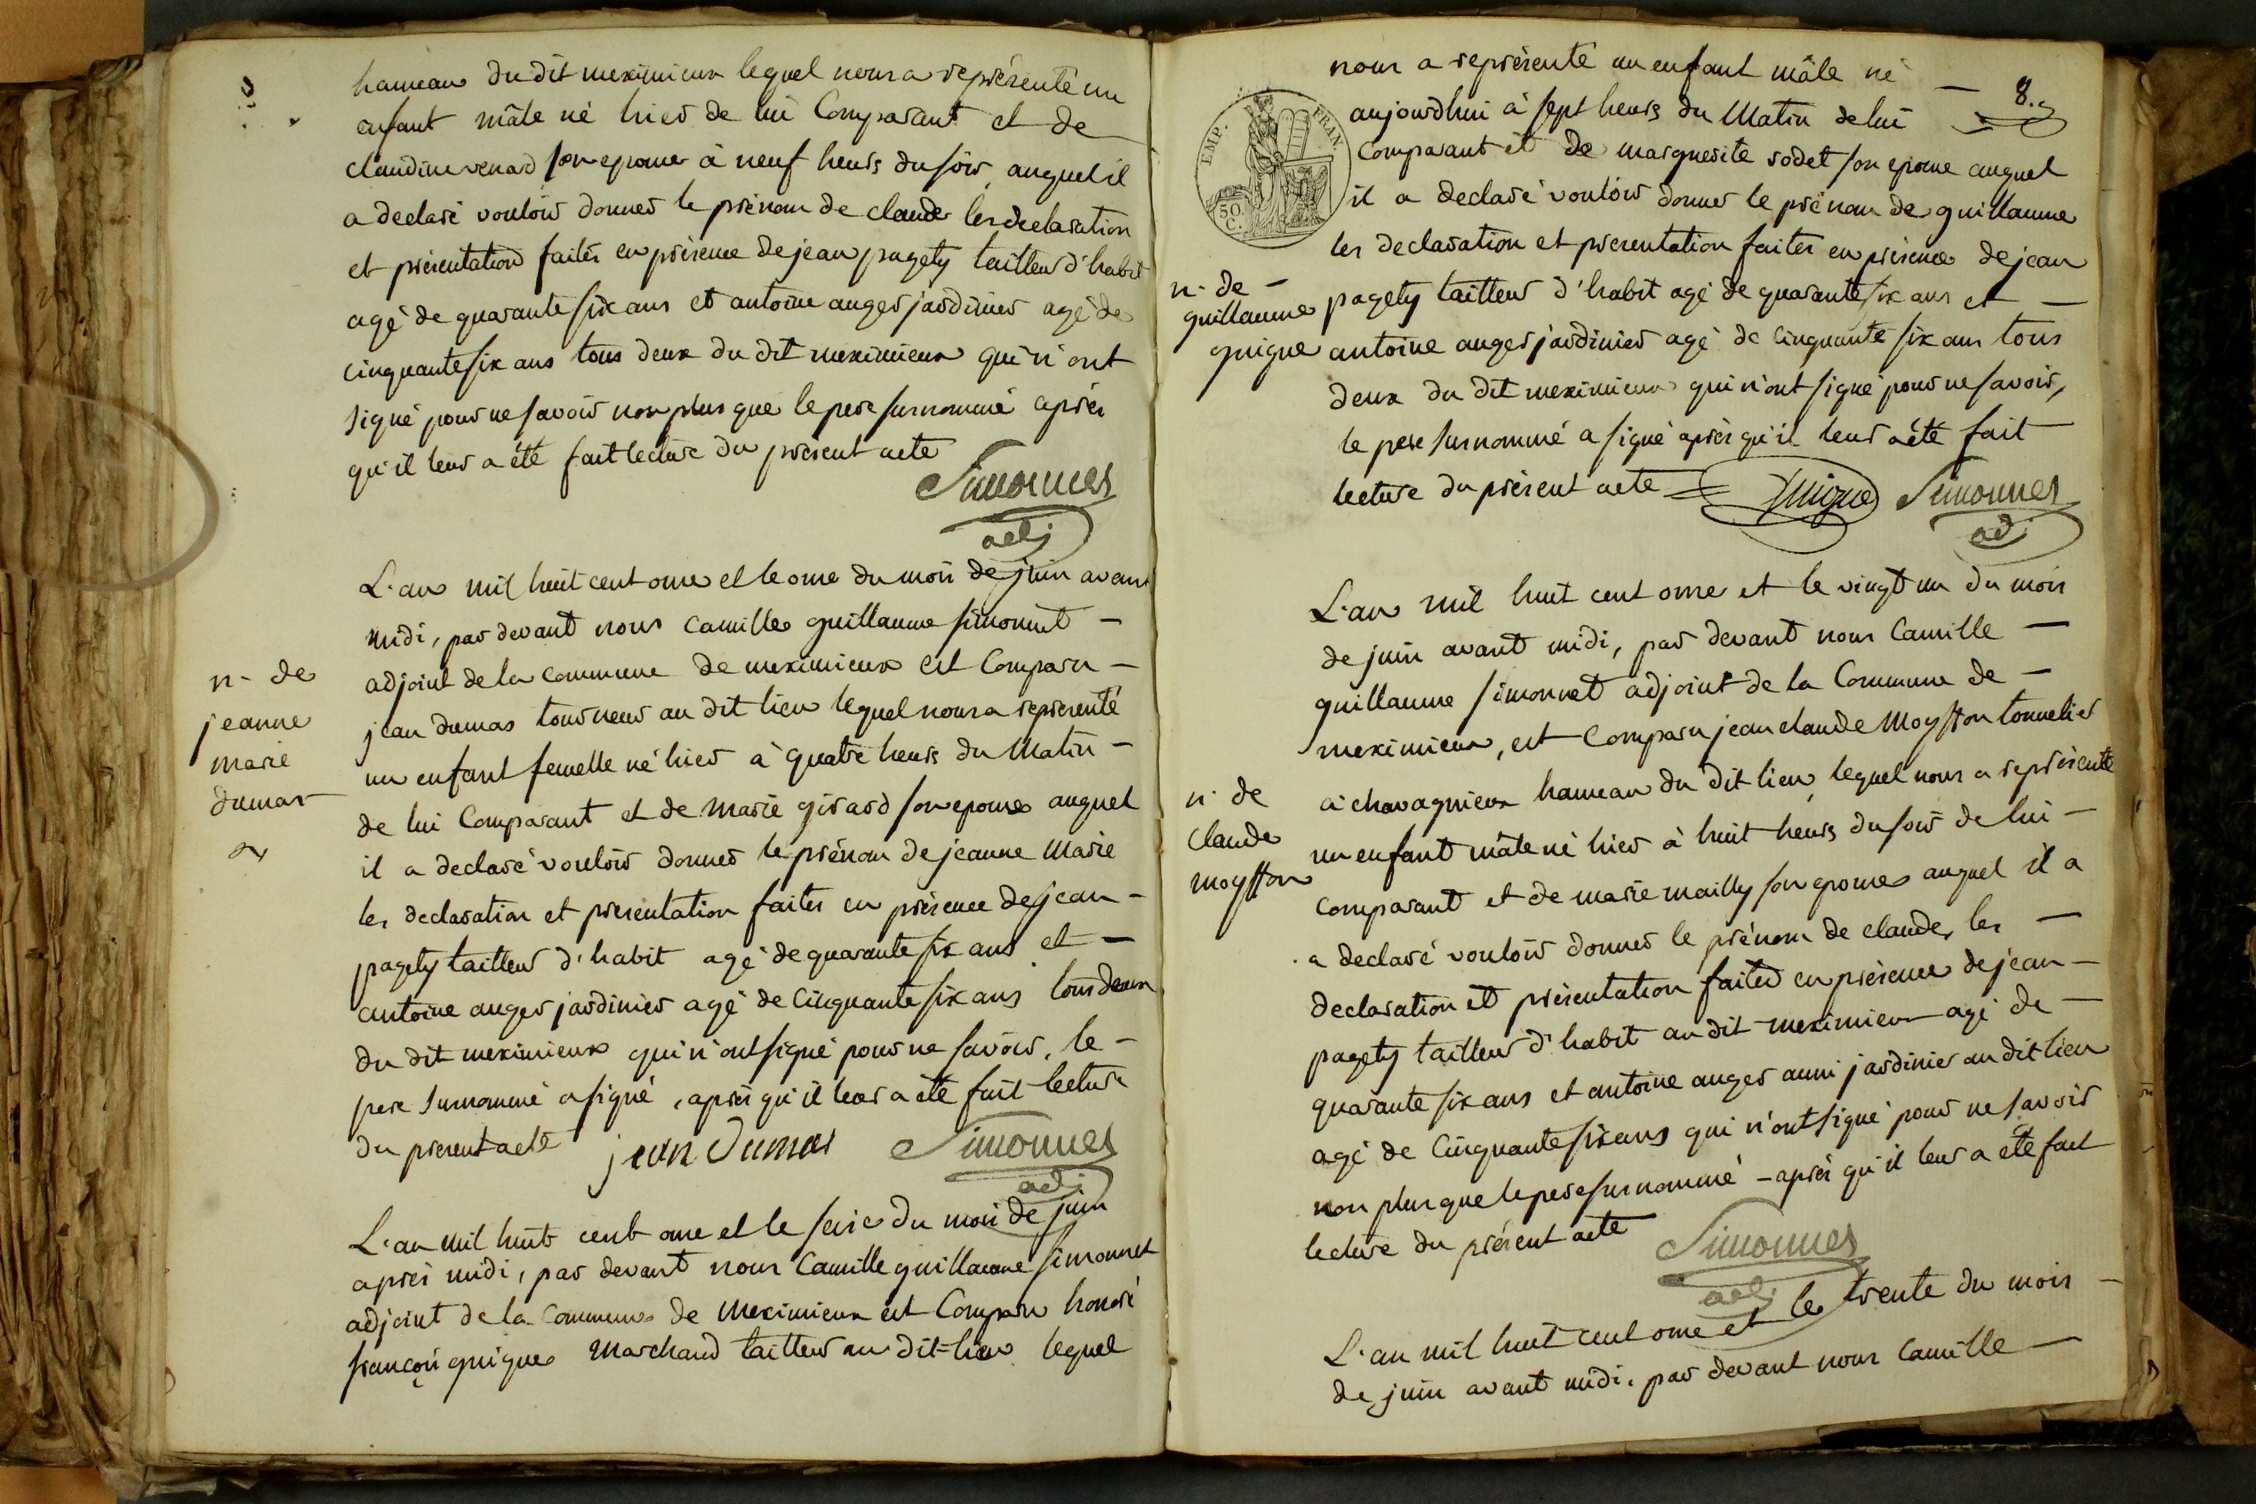 hameau du dit meximieux lequel nous a représenté un
enfant mâle né hier de lui Comparant et de
claudine venard son epouse à neuf heurs du soir auquel il
a declaré vouloir donner le prénom de claude les declaration
et présentation faites en présence de jean pagety tailleur d'habit
agé de quarante six ans et antoine auger jardinier agé de
cinquante six ans tous deux du dit meximieux qui n'ont
signé pour ne savoir non plus que le pere surnommé après
qu'il leur a été fait lecture du présent acte
Simonnet
adj
n. de
jeanne
marie
dumas
L'an mil huit cent onze et le onze du mois de juin avant
midi, par devant nous camille guillaume simonnet
adjoint de la commune de meximieux est Comparu
jean dumas tourneur au dit lieu lequel nous a représenté
un enfant femelle né hier à quatre heurs du Matin
de lui Comparant et de marie girard son epouse auquel
il a declaré vouloir donner le prénom de jeanne Marie
les declaration et presentation faites en présence de jean
pagety tailleur d'habit agé de quarante six ans et
antoine auger jardinier agé de Cinquante six ans tous deux
du dit meximieux qui n'ont signé pour ne savoir, le
pere surnommé a signé, après qu'il leur a été fait lecture
du present acte jean Dumas Simonnet
adj
L'an mil huit cent onze et le seize du mois de juin
après midi, par devant nous Camille guillaume Simonnet
adjoint de la Commune de Meximieux est Comparu honoré
françois guigue Marchand tailleur au dit lieu lequel
8.
EMP. FRAN.
50
C.
nous a représenté un enfant mâle né
aujourdhui à sept heurs du Matin de lui
Comparant et de marguerite rodet son epouse auquel
il a declaré vouloir donner le prénom de guillaume
les declaration et presentation faites en présence de jean
n. de
guillaume
guigue
pagety tailleur d'habit agé de quarante six ans et
antoine auger jardinier agé de Cinquante six ans tous
deux du dit meximieux qui n'ont signé pour ne savoir,
le pere surnommé a signé après qu'il leur a été fait
lecture du présent acte Guigue Simonnet
adj
L'an mil huit cent onze et le vingt un du mois
de juin avant midi, par devant nous Camille
guillaume simonnet adjoint de la Commune de
meximieux, est Comparu jean claude Moysson tonnelier
n. de
Claude
moysson
à chavagnieux hameau du dit lieu lequel nous a représenté
un enfant mâle né hier à huit heurs du soir de lui
comparant et de marie mailly son epouse auquel il a
a declaré vouloir donner le prénom de claude, les
declaration et présentation faites en présence de jean
pagety tailleur d'habit au dit meximieux agé de
quarante six ans et antoine auger aussi jardinier au dit lieu
agé de Cinquante six ans qui n'ont signé pour ne savoir
non plus que le pere surnommé - après qu'il leur a été fait
lecture du présent acte
Simonnet
adj
L'an mil huit cent onze et le trente du mois
de juin avant midi, par devant nous Camille